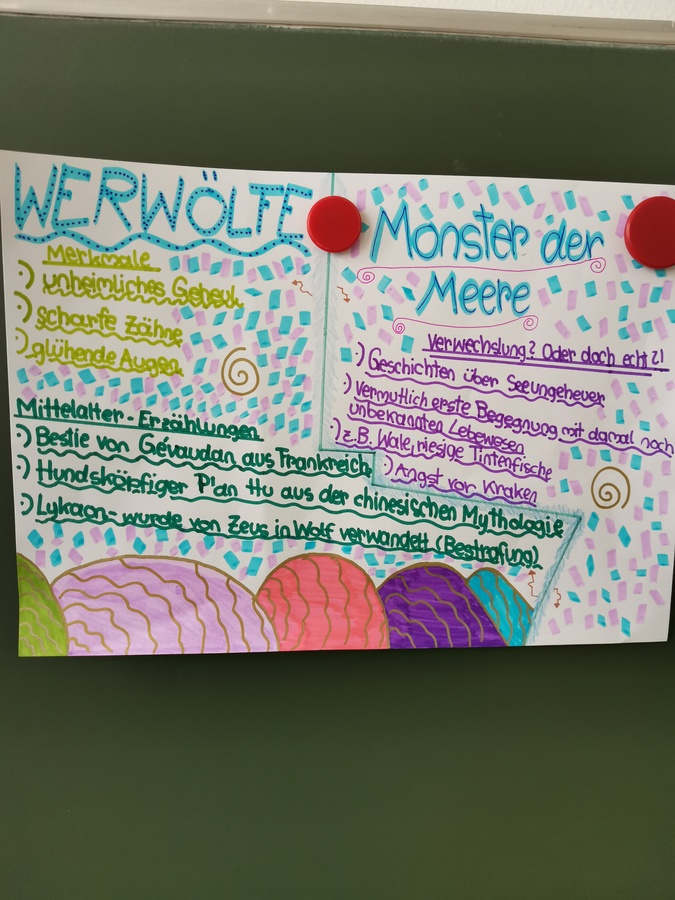 WERWÖLFE
Merkmale
:) unheimliches Geheul
:) scharfe Zähne
:) glühende Augen
Mittelalter - Erzählungen
:) Bestie von Gévaudan aus Frankreich
:) Hundsköpfiger P'an Hu aus der chinesischen Mythologie
:) Lykaon - wurde von Zeus in Wolf verwandelt (Bestrafung)
Monster der
Meere
Verwechslung? Oder doch echt?!
:) Geschichten über Seeungeheuer
:) vermutlich erste Begegnung mit damal noch
unbekannten Lebewesen
:) z.B. Wale, riesige Tintenfische
:) Angst vor Kraken